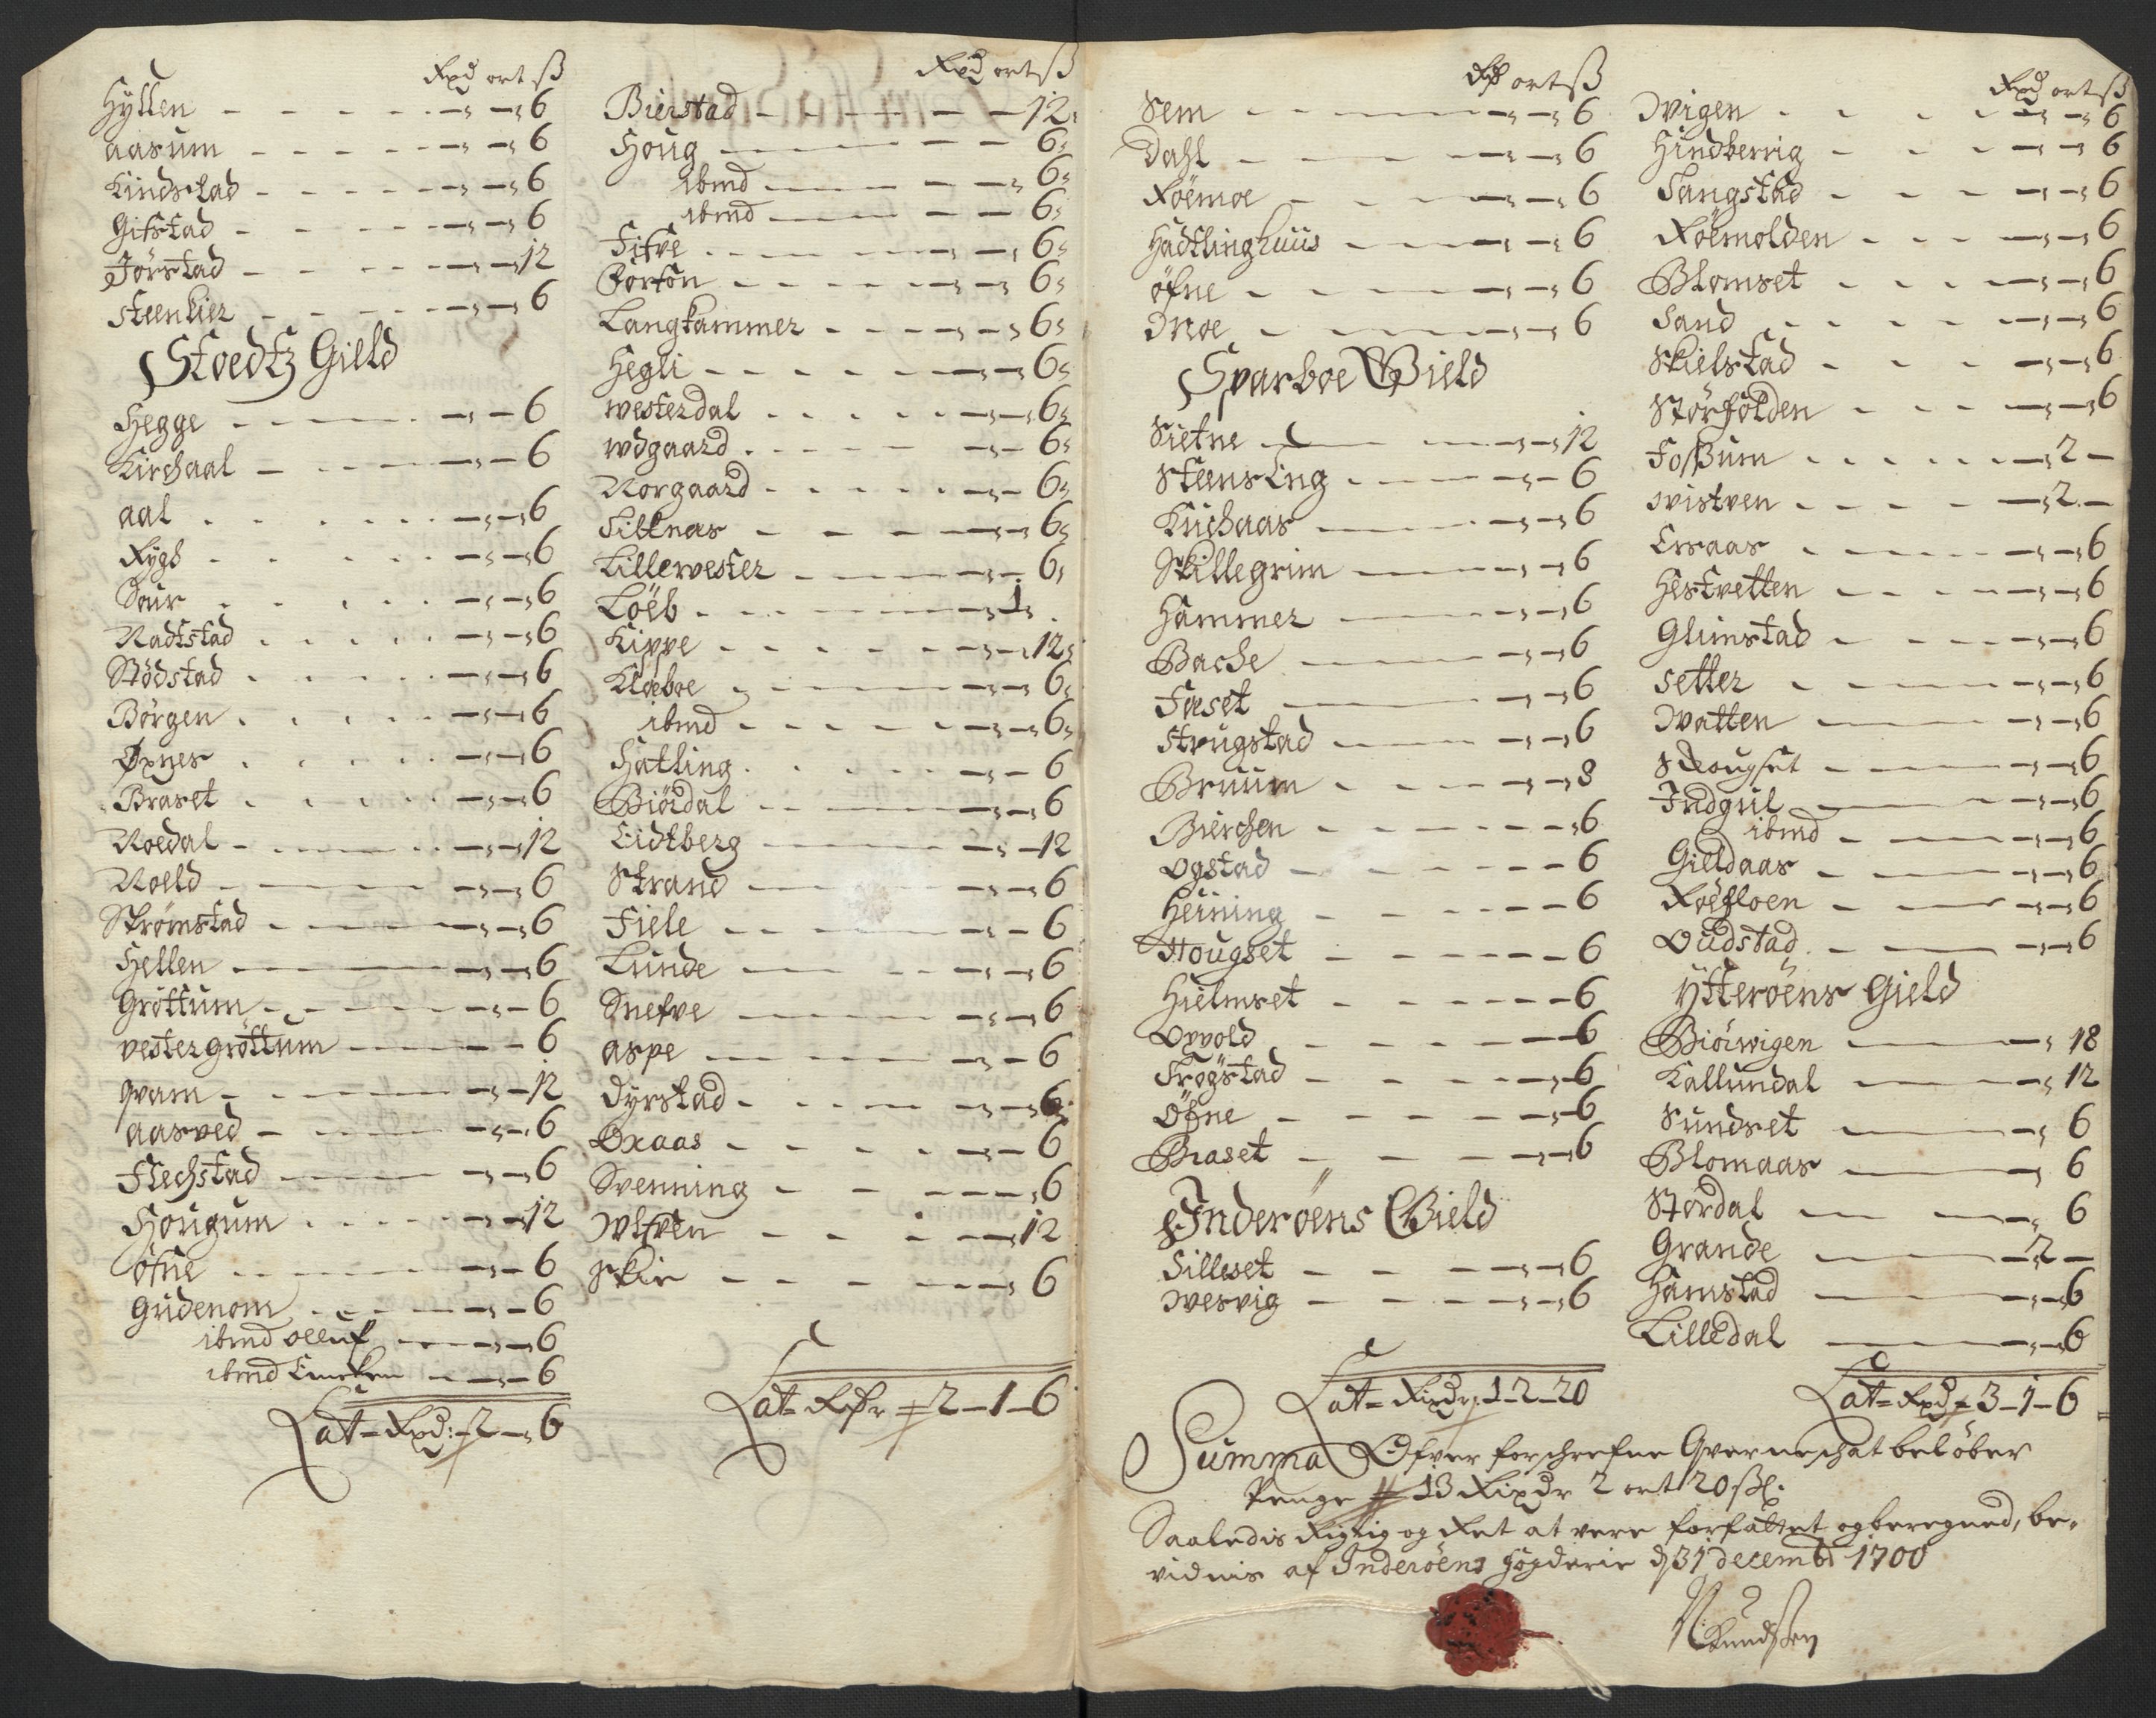 Rxd ort ß
Hyllen - - - - - - 6
aasum - - - - - - 6
Kindstad - - - - - - 6
Gifstad - - - - - - 6
Jörstad - - - - - 12
Steenkier - - - - - 6
Stoedtz Gield
Hegge - - - - 6
Kirchaal - - - - 6
aal - - - - - - 6
Rygh - - - - - 6
Saur - - - - - 6
Nadtstad - - - - - 6
Stödstad - - - - - 6
Börgen - - - - - 6
Øxnes - - - - - 6
Braset - - - - - 6
Roedal - - - - - 12
Roeld - - - - - 6
Strömstad - - - - 6
Hellen - - - - 6
Gröttum - - - - 6
vestergröttum - - - 6
qvam - - - - 12
aasved - - - - 6
Flechstad - - - 6
Hougum - - - - 12
öfne - - - - - 6
Gudenom - - - - 6
ibmd olluf - - - 6
ibmd - - - 6
Lat= Rxd: 2 - 6
Rxd ort ß
Bierstad - - - - 12
Houg - - - - 6
ibmd - - - - 6
ibmd - - - - 6
Fifve - - - - - 6
- - - - - 6
Langkammer - - - - 6
Hegli - - - - - 6
westerdal - - - - - 6
wdgaard - - - - - 6
Norgaard - - - - - 6
Sillnas - - - - 6
Lillewester - - - - 6
Löeb - - - - 1
Kippe - - - - - 12
Klæboe - - - - 6
ibmd - - - - - 6
Hatling - - - - - 6
Biördal - - - - 6
Eidtberg - - - 12
Strand - - - - 6
Fiele - - - - 6
Lunde - - - - 6
Snefve - - - - 6
aspe - - - - 6
Dyrstad - - - - 6
Oxaas - - - - - 6
Svenning - - - - 6
Wlfven - - - - 12
Skir - - - - - 6
Lat= Rdr 2 - 1 - 6
Rd ort ß
Sem - - - - - 6
Dahl - - - - - 6
Röemoe - - - - - 6
Hadtlinghuus - - - - 6
öfne - - - - - 6
Moe - - - - - 6
Sparboe Gield
Sietne - - - - 12
SteensEng - - - - 6
Kirchaas - - - - 6
Skillegrim - - - 6
Hammer - - - - 6
Bache - - - - 6
Faset - - - - 6
Strugstad - - - 6
Bruum - - - - 8
Bierchen - - - - - 6
Ogstad - - - - - 6
Heining - - - - - 6
Hougset - - - - - 6
Hielmset - - - - - 6
Opvold - - - - - 6
Frögstad - - - - - 6
Öfne - - - - - 6
Braset - - - - - 6
Inderöens Gield
Silleset - - - - - 6
Wesvig - - - - - 6
Lat= Rixdr 1-2-20
Rxd ort ß
Wigen - - - - - 6
Hindberrig - - - - 6
Sangstad - - - - 6
Röemolden - - - - 6
Blomset - - - - - 6
Sand - - - - - 6
Skielstad - - - - 6
Störfölden - - - - 6
Foßum - - - - - 2 -
Wistven - - - - 2 -
Ersaas - - - - 6
Hestvetten - - - - 6
Glimstad - - - - 6
setter - - - - 6
Watten - - - 6
Skougset - - - - 6
Indgul - - - 6
ibmd - - - - 6
Gieldaas - - - - 6
Röefloen - - - 6
Oudstad - - - - 6
Ytteröens Gield
Biörwigen - - - 18
Kallundal - - - 12
Sundset - - - 6
Blomaas - - - 6
Stordal - - - 6
Grande - - - 2 -
Hamstad - - - 6
Lilledal - - - 6
Lat= Rxd 3-1-6
Summa Ofver forschrefne Qverneschat belöber
Penge 13 Rixdr 2 ort 20 ßl.
Saaledis Rigtig og Ret at vere forfattet og beregned, be-
vidnis af Inderöens fogderie d 31 decembr 1700
Knudssen